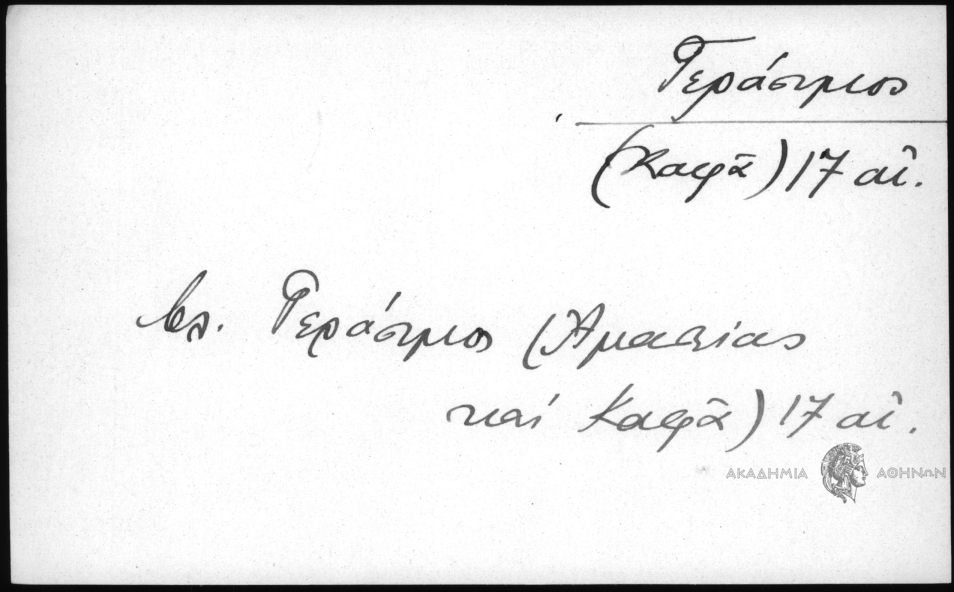 Γεράσιμος
(Καφᾶ) 17 αἰ.
βλ. Γεράσιμος (Ἀμασείας
καί Καφᾶ) 17 αἰ.
ΑΚΑΔΗΜΙΑ ΑΘΗΝΩΝ